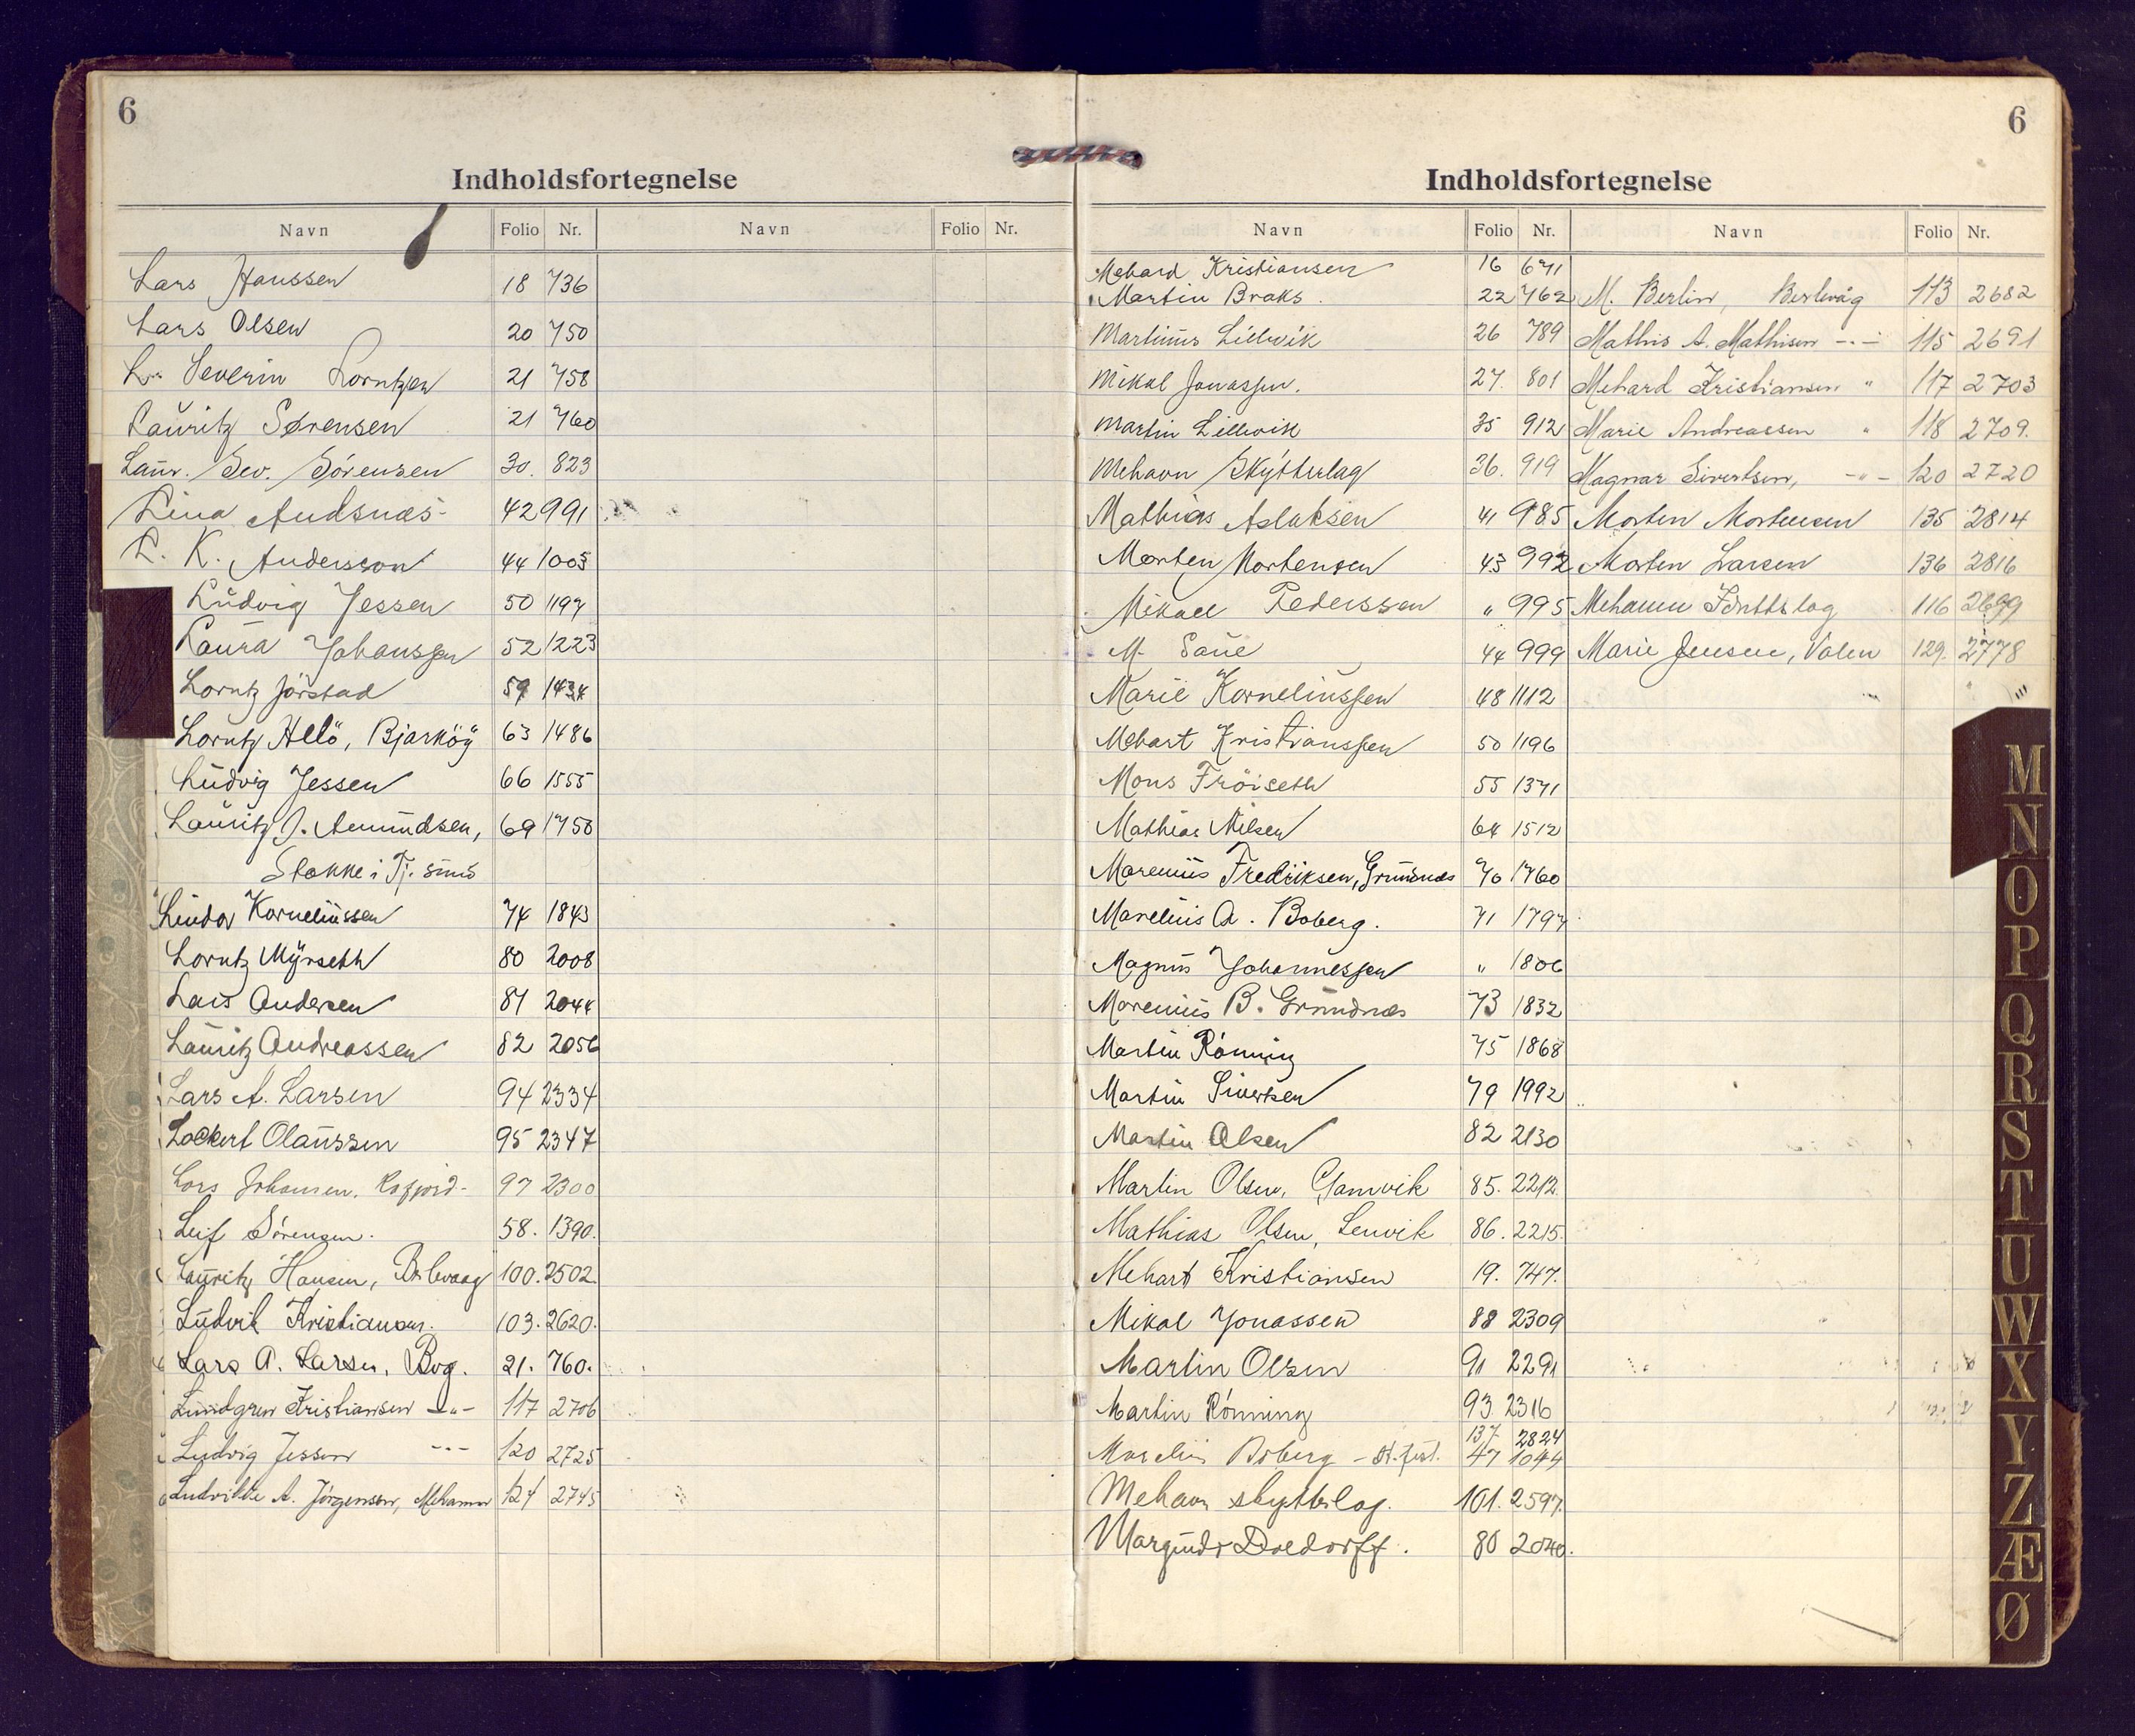 6
Indholdsfortegnelse
Navn Folio Nr. Navn Folio Nr.
Lars Hanssen 18 736
Lars Olsen 20 750
L. Severin Lorntzen 21 758
Lauritz Sørensen 21 760
Laur. Sev. Sörensen 30. 823
Lina Audsnæs 42 991
L. K. Andersson 44 1003
Ludvig Jessen 50 1197
Laura Johanssen 52 1223
Lorntz Jörstad 59 1434
Lorntz Hellö, Bjarköy 63 1486
Ludvig Jessen 66 1555
Lauritz J. Amundsen, 69 1750
Stokke i Tj. sund
Lindor Korneliussen 74 1843
Lorntz Myrseth 80 2008
Lars Andersen 81 2044
Lauritz Andreassen 82 2056
Lars A. Larsen 94 2334
Lockert Olaussen 95 2347
Lars Johansen, Kofjord 97 2300
Leif Sörensen. 58. 1390.
Lauritz Hansen, Berlevaag 100. 2502.
Ludvik Kristiansen. 103. 2620.
Lars A. Larsen, Bvg. 21. 760.
Lundgren Kristiansen -"- 117 2706
Ludvig Jessen -"- 120 2725
Ludvikke A. Jörgensen, Mehamn 124 2745
6
Indholdsfortegnelse
Navn Folio Nr. Navn Folio Nr.
Mehard Kristiansen 16 671
Martin Braks. 22 762
Martinus Lillevik 26 789
Mikal Jonassen. 27. 801
Martin Lillevik 35 912
Mehavn Skytterlag 36. 919
Mathias Aslaksen 41 985
Morten Mortensen 43 992
Mikael Pederssen " 995
M. Saue 44 999
Marie Korneliussen 48 1112
Mehart Kristianssen 50 1196
Mons Fröiseth 55 1371
Mathias Nilsen 64 1512
Marenius Fredriksen, Grundnæs 70 1760
Marelius A. Boberg. 71 1797
Magnus Johannessen " 1806
Marenius B. Grundnæs 73 1832
Martin Rönning 75 1868
Martin Sivertsen 79 1992
Martin Olsen 82 2130
Martin Olsen, Gamvik 85. 2212.
Mathias Olsen, Lenvik 86. 2215.
Mehart Kristiansen 19. 747.
Mikal Jonassen 88 2309
Martin Olsen 91 2291
Martin Rönning 93 2316
137 2824
Marelius Boberg 47 1044
Mehavn skytterlag. 101. 2597.
Margido Doldorff. 80 2040.
M. Berlin, Berlevåg 113 2682
Mathis A. Mathisen -"- 115 2691
Mehard Kristiansen " 117 2703
Marie Andreassen " 118 2709.
Magnar Sivertsen, -"- 120 2720
Morten Mortensen 135 2814
Morten Larsen 136 2816
Mehamn Idrettslag 116 2699
Marie Jensen, Valen 129. 2778
M
N
O
P
Q
R
S
T
U
W
X
Y
Z
Æ
Ø